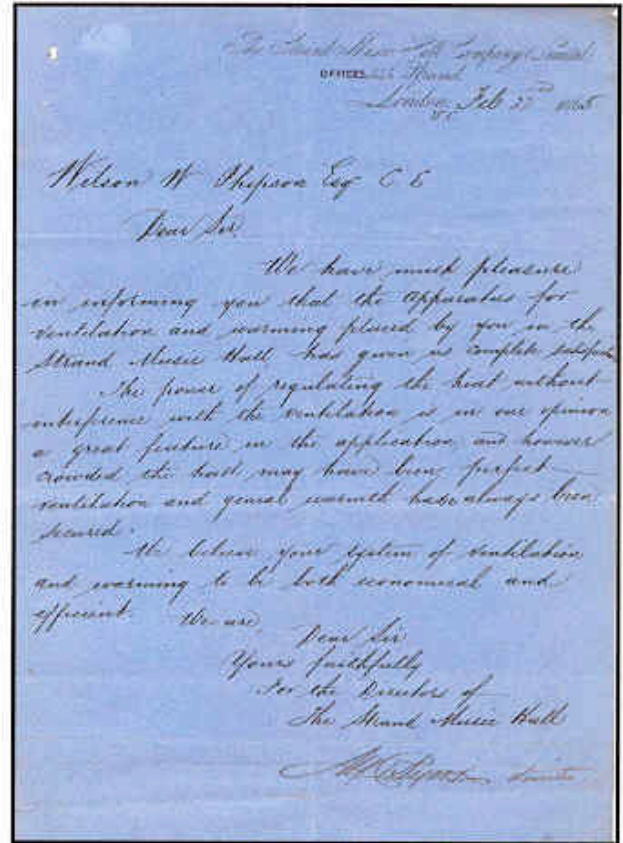 The Strand Music Hall Company Limited
OFFICES Strand
London Feb 1865
W C
Wilson W Phipson Esq C E
Dear Sir
We have much pleasure
in informing you that the apparatus for
ventilation and warming placed by you in the
Strand Music Hall has given us complete satisfaction
The power of regulating the heat without
interference with the ventilation is in our opinion
a great feature in the application, and however
crowded the hall may have been, perfect
ventilation and genial warmth have always been
secured.
We believe your system of ventilation
and warming to be both economical and
efficient. We are,
Dear Sir
Yours faithfully
For the Directors of
The Strand Music Hall